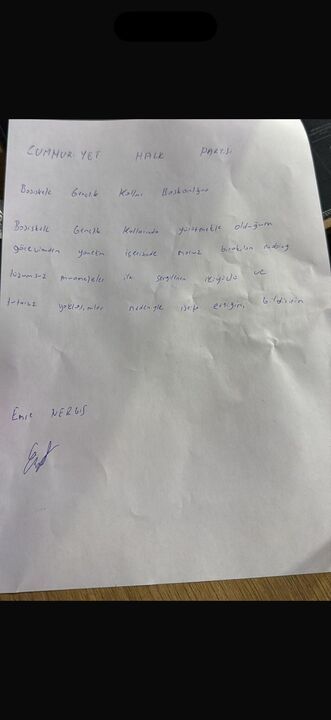 CUMHURİYET HALK PARTİSİ
Başiskele Gençlik Kolları Başkanlığına
Başiskele Gençlik Kollarında yürütmekte olduğum
görevimden yönetim içerisinde maruz bırakılan
lüzumsuz muameleler ile sergilenen ikiyüzlü ve
tutarsız yaklaşımlar nedeniyle istifa ettiğimi bildiririm
Emre NERGİS